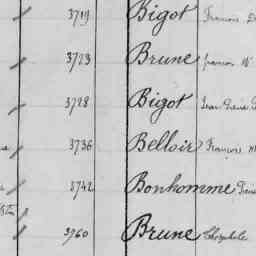 3719 Bigot François
3723 Brune françois
3728 Bigot Jean
3736 Belloir François
3742 Bonhomme
3760 Brune Théophile